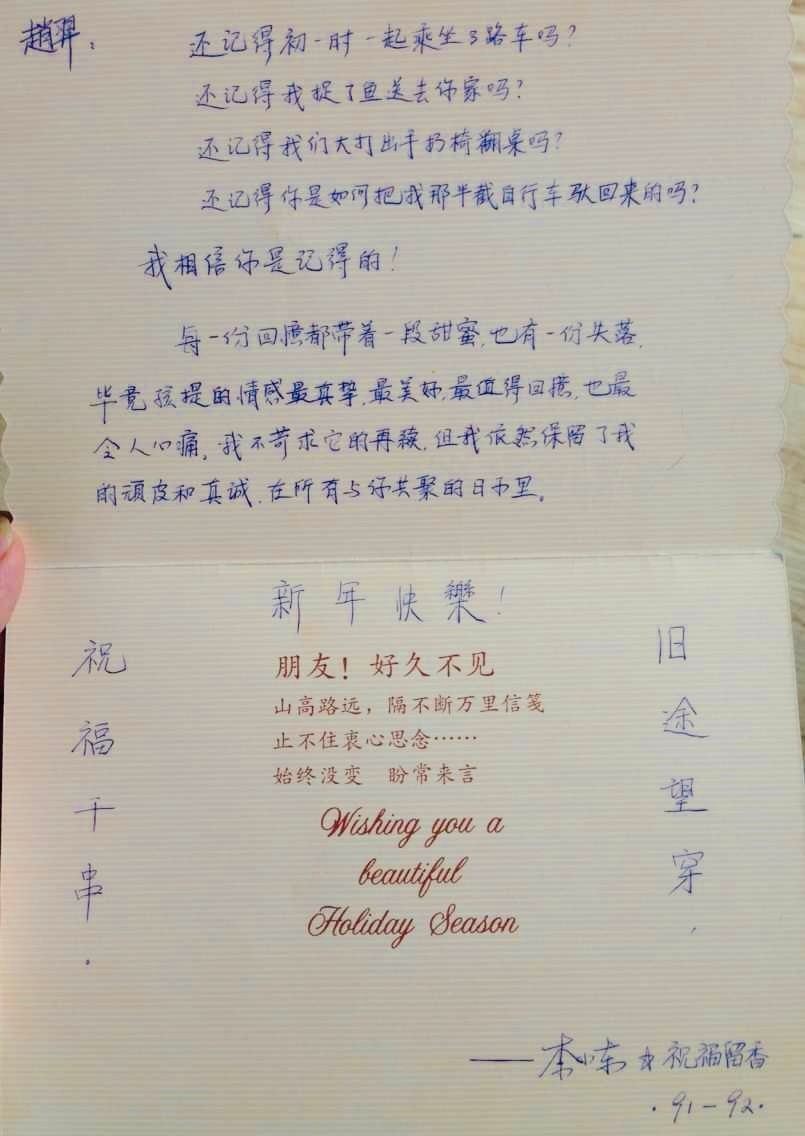 趙羿：
还记得初一时一起乘坐3路车吗？
还记得我捉了鱼送去你家吗？
还记得我们大打出手扔椅翻桌吗？
还记得你是如何把我那半截自行车驮回来的吗？
我相信你是记得的！
每一份回憶都带着一段甜蜜,也有一份失落,
毕竟孩提的情感最真挚,最美好,最值得回憶,也最
令人心痛,我不苛求它的再续,但我依然保留了我
的顽皮和真诚,在所有与你共聚的日子里。
新年快樂！
旧途望穿,
祝福千串.
朋友！好久不见
山高路远，隔不断万里信笺
止不住衷心思念……
始终没变 盼常来言
Wishing you a
beautiful
Holiday Season
——李小东 祝福留香
·91-92·